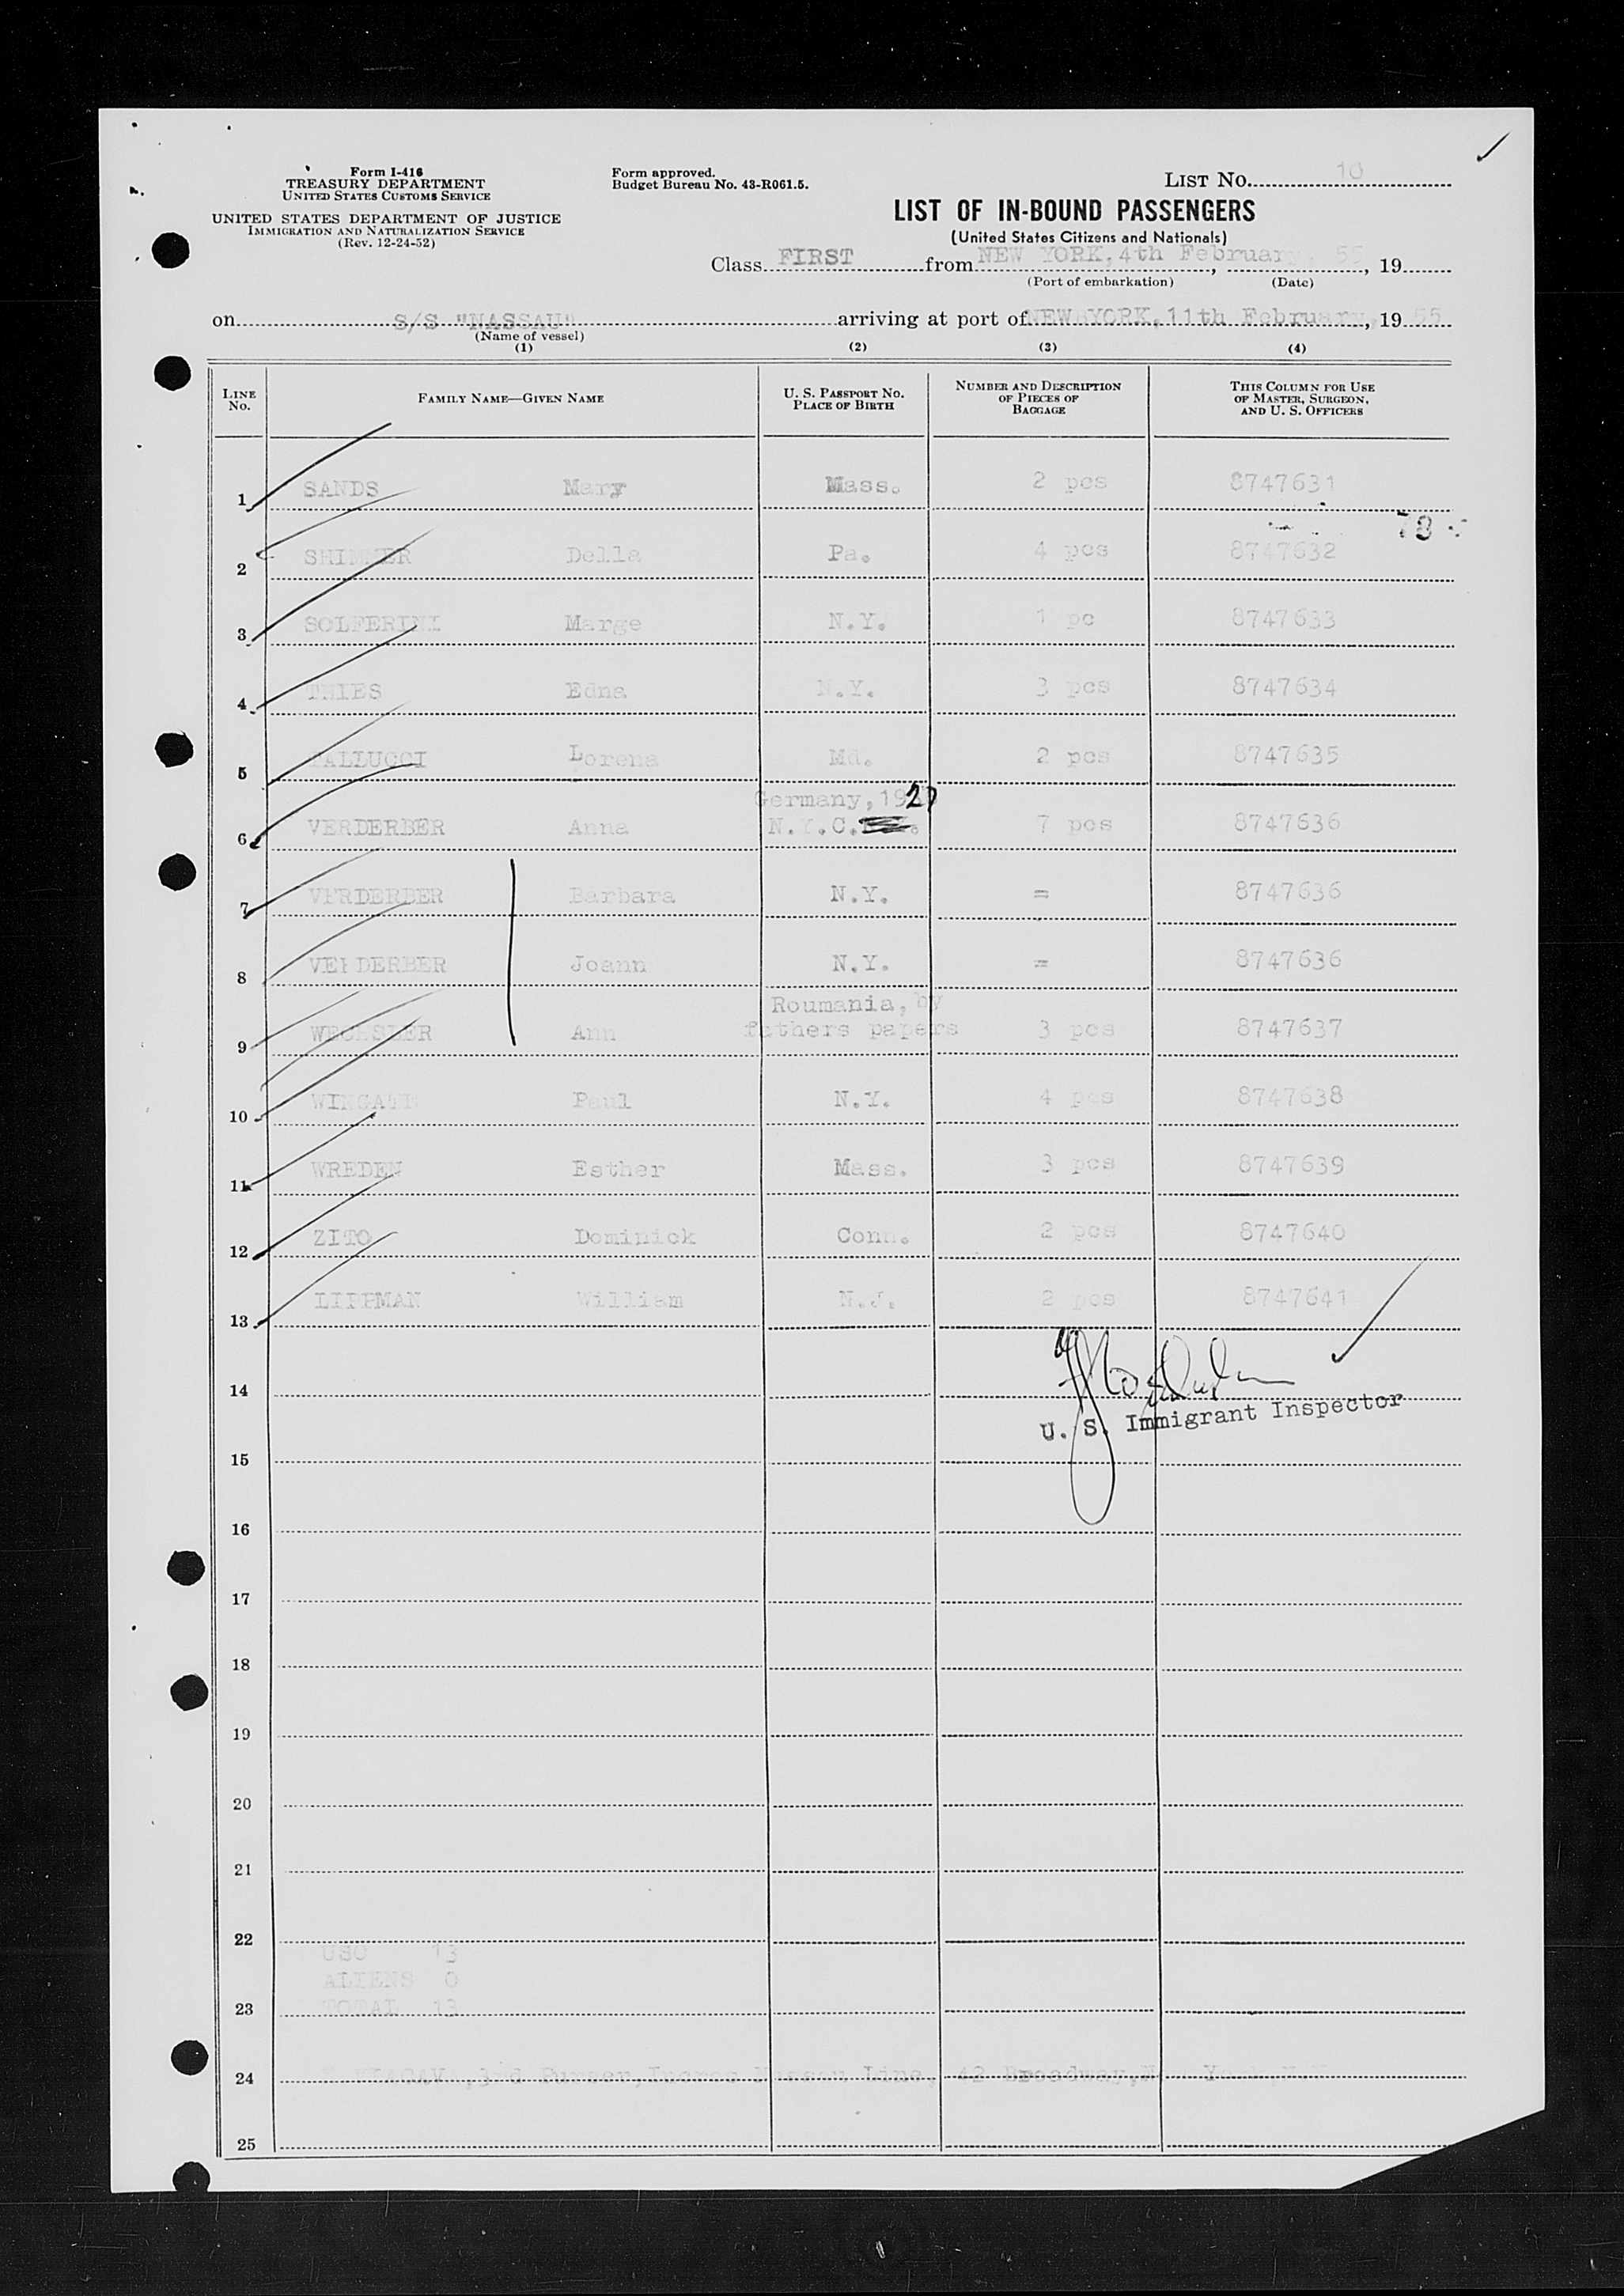 Form I-416
TREASURY DEPARTMENT
UNITED STATES CUSTOMS SERVICE
UNITED STATES DEPARTMENT OF JUSTICE
IMMIGRATION AND NATURALIZATION SERVICE
(Rev. 12-24-52)
Form approved.
Budget Bureau No. 43-R061.5.
LIST NO. 10
LIST OF IN-BOUND PASSENGERS
(United States Citizens and Nationals)
Class FIRST from NEW YORK, 4th February 55, 19
(Port of embarkation) (Date)
on S/S "NASSAU" arriving at port of NEW YORK, 11th February, 19 55
(Name of vessel)
(1) (2) (3) (4)
LINE NO. FAMILY NAME—GIVEN NAME U. S. PASSPORT NO. PLACE OF BIRTH NUMBER AND DESCRIPTION OF PIECES OF BAGGAGE THIS COLUMN FOR USE OF MASTER, SURGEON, AND U. S. OFFICERS
1 SANDS Mary Mass. 2 pcs 8747631
78
2 SHIMMER Della Pa. 4 pcs 8747632
3 SOLFERINI Marge N.Y. 1 pc 8747633
4 THIES Edna N.Y. 3 pcs 8747634
5 Lorena Md. 2 pcs 8747635
Germany, 1927
6 VERDERBER Anna N.Y.C. 7 pcs 8747636
7 VERDERBER Barbara N.Y. = 8747636
8 VERDERBER Joann N.Y. = 8747636
Roumania, by
9 WECHSLER Ann fathers papers 3 pcs 8747637
10 WINGATE Paul N.Y. 4 pcs 8747638
11 WREDEN Esther Mass. 3 pcs 8747639
12 ZITO Dominick Conn. 2 pcs 8747640
13 LIPPMAN William N.J. 2 pcs 8747641
14
U. S. Immigrant Inspector
15
16
17
18
19
20
21
22
USC 13
ALIENS 0
23 TOTAL 13
24 3rd Purser, Incres Nassau Line, 42 Broadway, New York, N.Y.
25